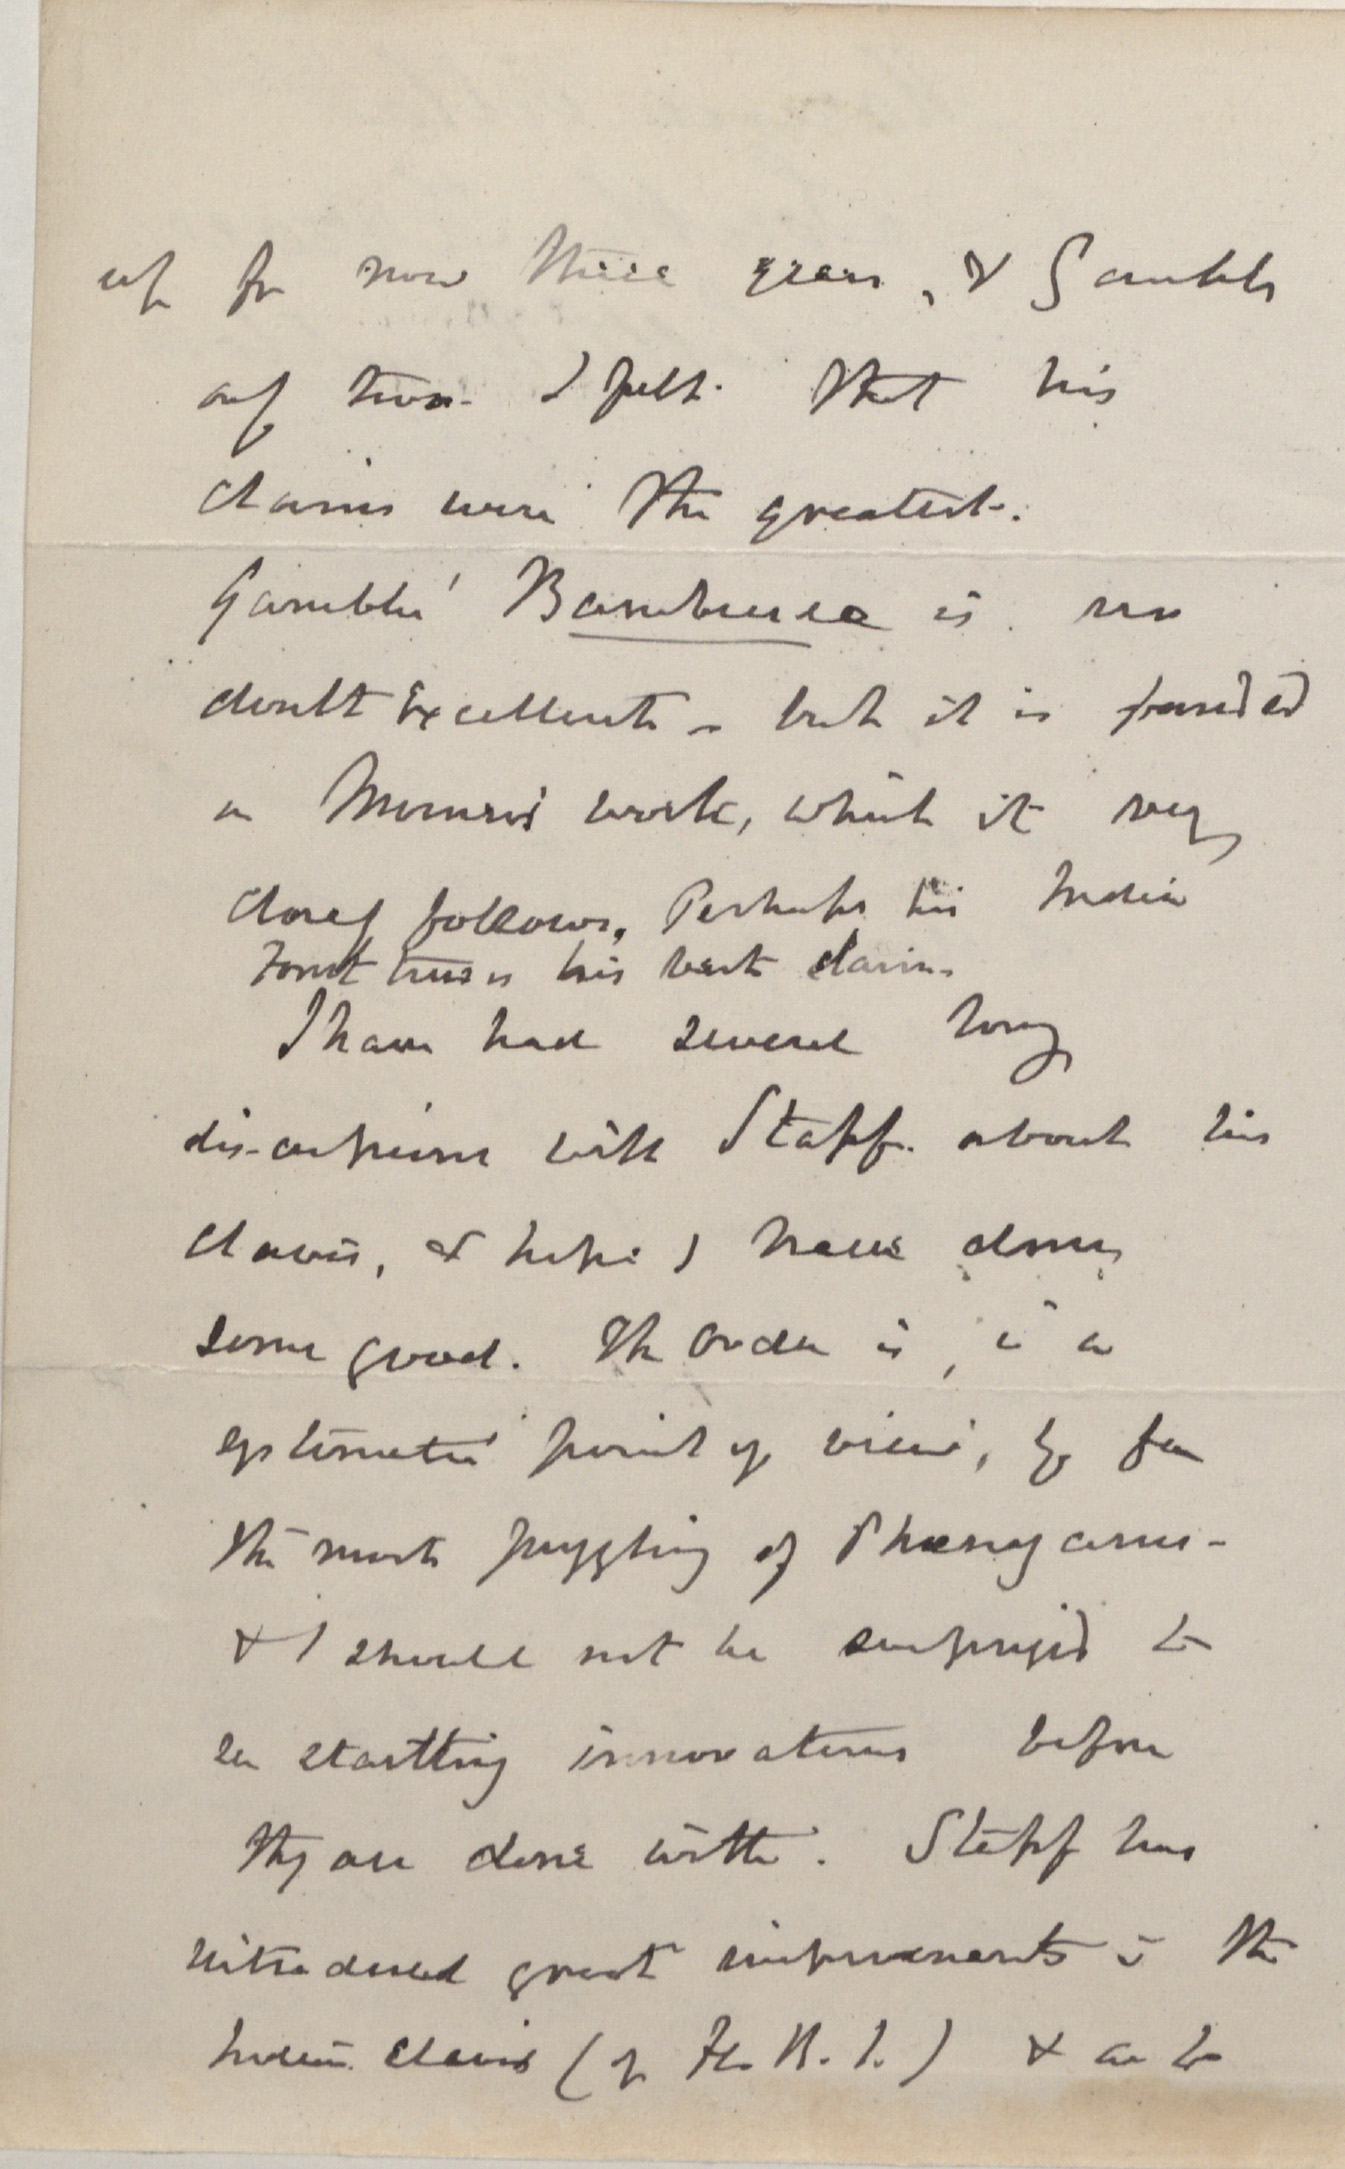 up for now three years, & Gamble
only two. I felt that his
claims were the greatest.
Gambles' Bambuseae is no
doubt excellent – but it is founded
on Munro's work, which it very
closely follows. Perhaps his Indian
Forest trees is his best claim.
I have had several long
discussions with Stapf about his
Clavis, & hope I have done
some good. The order is, in a
systematic point of view, by far
the most puzzling of Phaenogams –
& I should not be surprised to
see startling innovations before
they are done with. Stapf has
introduced great improvements in the
Indian Clavis (of Fl. B. I.) & as to